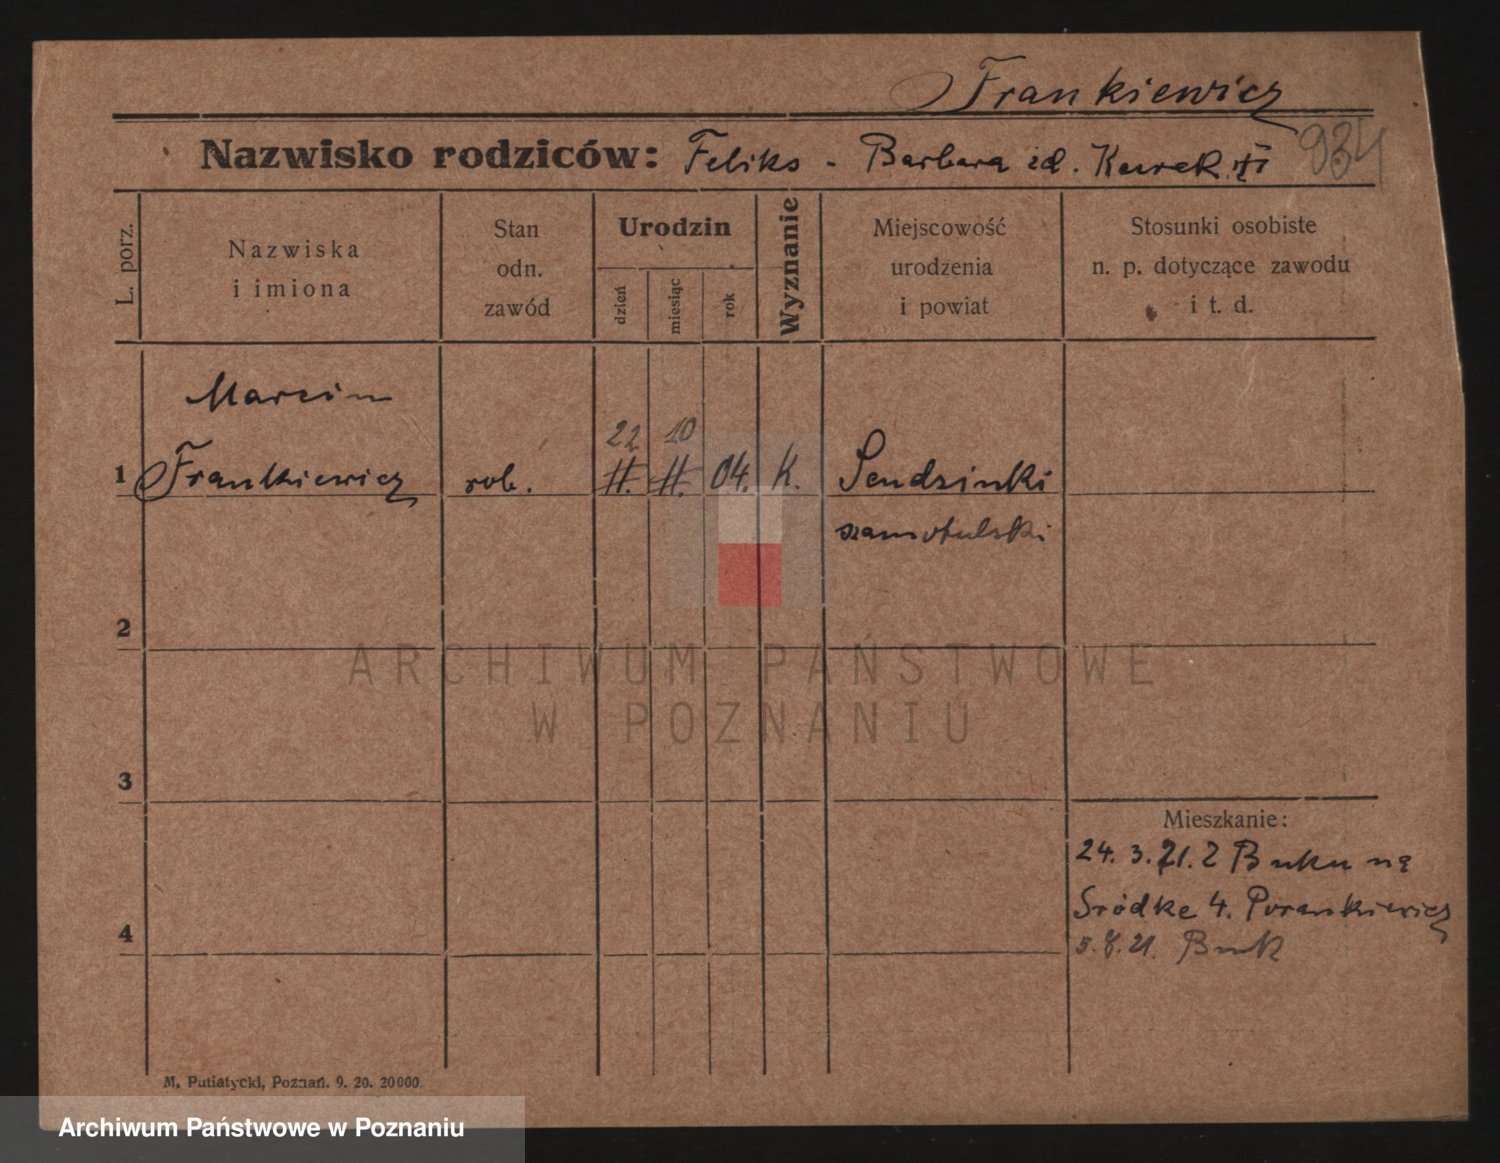 Frankiewicz
Nazwisko rodziców: Feliks - Barbara zd.
934
L. porz.
Nazwiska
i imiona
Stan
odn.
zawód
Urodzin
dzień
miesiąc
rok
Wyznanie
Miejscowość
urodzenia
i powiat
Stosunki osobiste
n. p. dotyczące zawodu
i t. d.
Marcin
22 10
1 Frankiewicz rob. 11. 11. 04. K. Sendzinki
szamotulski
2
ARCHIWUM PAŃSTWOWE
W POZNANIU
3
Mieszkanie:
24. 3. 21. z Buku na
Śródke 4. Porankiewicz
4
5. 8. 21. Buk
M. Putiatycki, Poznań. 9. 20. 20000.
Archiwum Państwowe w Poznaniu